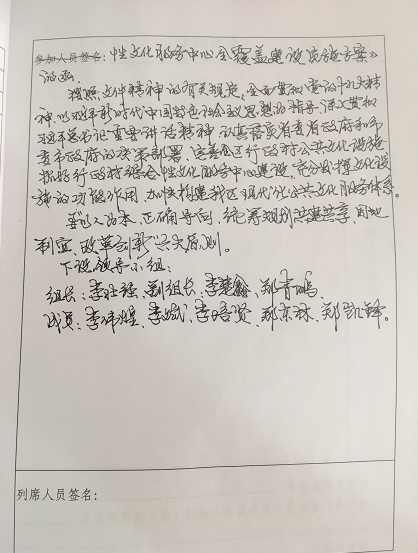 参加人员签名：性文化服务中心全覆盖建设实施方案》
的函。
按照文件精神的有关规定，全面贯彻党的十九大精
神，以习近平新时代中国特色社会主义思想为指导，深入贯彻
习近平总书记重要讲话精神，认真落实省委省政府和市
委市政府的决策部署，完善全区行政村公共文化设施
抓好行政村综合性文化服务中心建设，充分发挥文化设
施的功能作用，加快构建我区现代化公共文化服务体系。
要以人为本、正确导向，统筹规划共建共享，因地
制宜、改革创新"六大原则。
下设领导小组：
组长：李壮强、副组长：李楚鑫、郑青鹏
成员：李伟煌、李斌、李培贤、郑东林、郑凯锋。
列席人员签名：